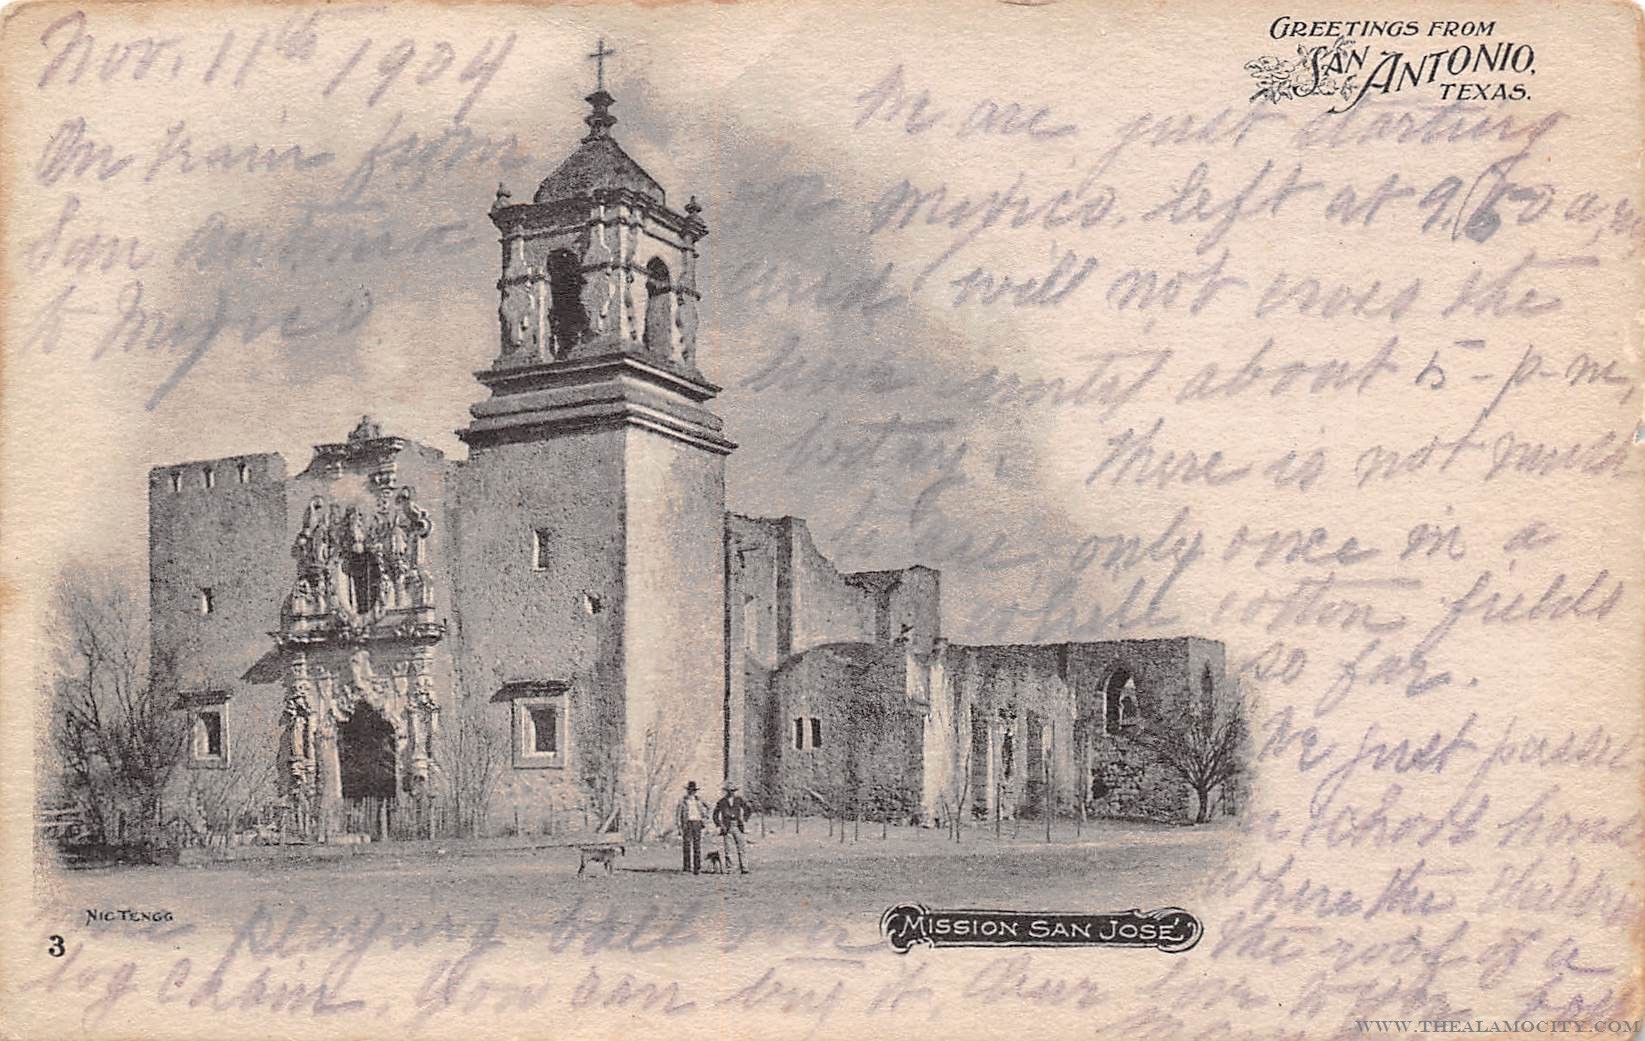 Nov. 11th 1904
On train from
San Antonio
to Mexico
GREETINGS FROM
SAN ANTONIO,
TEXAS.
We are just starting
Mexico. left at 9.
will not cross the
about 5-p-m,
There is not much
to see only once in a
while cotton fields
so far.
We just passed
a school house
where the children
are playing ball over the roof of a
log
You can try it
NIC TENGG
3
MISSION SAN JOSÉ
WWW.THEALAMOCITY.COM